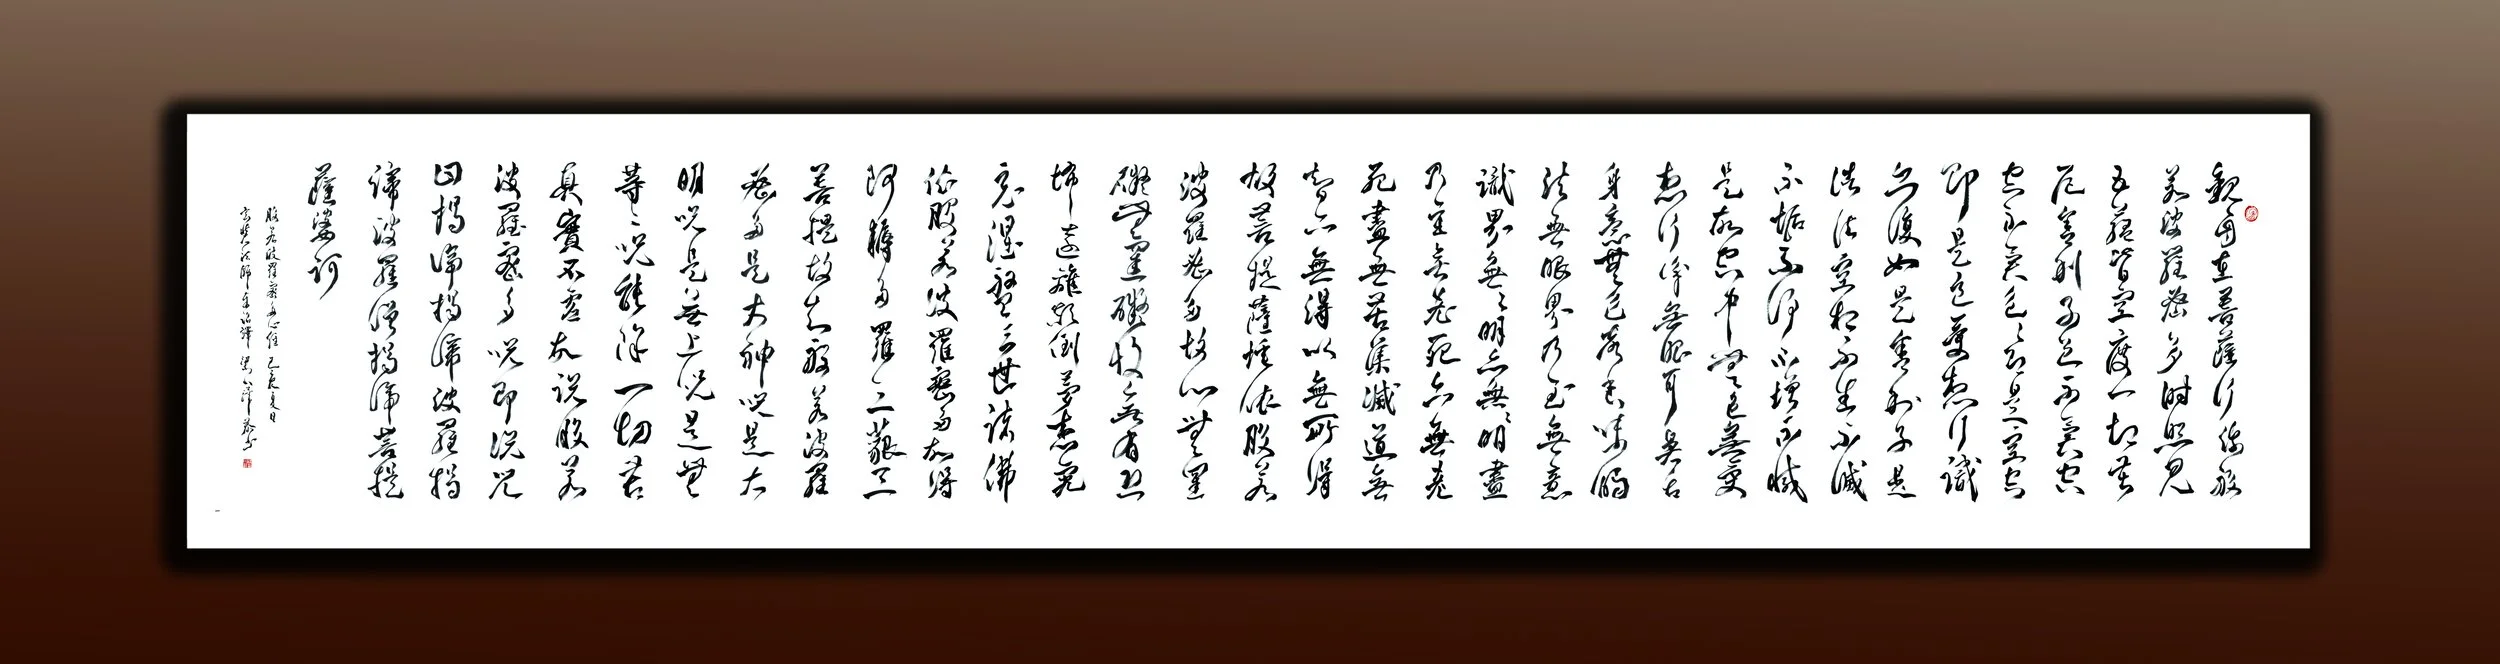 觀自在菩薩行深般
若波羅蜜多時照見
五蘊皆空度一切苦
厄舍利子色不異空
空不異色色即是空空
即是色受想行識
亦復如是舍利子是
諸法空相不生不滅
不垢不淨不增不減
是故空中無色無受
想行識無眼耳鼻舌
身意無色聲香味觸
法無眼界乃至無意
識界無無明亦無無明盡
乃至無老死亦無老
死盡無苦集滅道無
智亦無得以無所得
故菩提薩埵依般若
波羅蜜多故心無罣
礙無罣礙故無有恐
怖遠離顛倒夢想究
竟涅槃三世諸佛
依般若波羅蜜多故得
阿耨多羅三藐三
菩提故知般若波羅
蜜多是大神咒是大
明咒是無上咒是無
等等咒能除一切苦
真實不虛故說般若
波羅蜜多咒即說咒
曰揭諦揭諦波羅揭
諦波羅僧揭諦菩提
薩婆訶
般若波羅蜜多心經 己亥夏日
玄奘法師奉詔譯